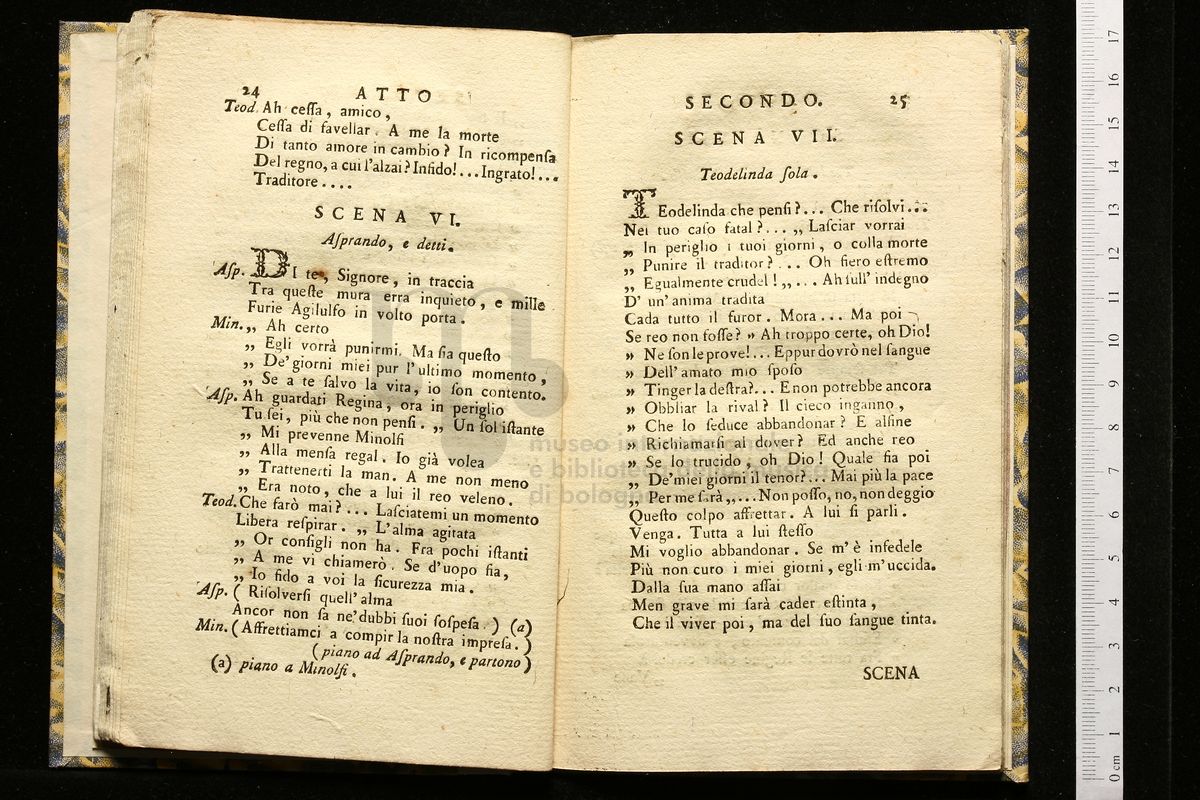 24 ATTO
Teod. Ah ceſſa, amico,
Ceſſa di favellar. A me la morte
Di tanto amore in cambio? In ricompenſa
Del regno, a cui l'alzai? Infido!... Ingrato!...
Traditore....
SCENA VI.
Aſprando, e detti.
Aſp. DI te, Signore, in traccia
Tra queſte mura erra inquieto, e mille
Furie Agilulfo in volto porta.
Min. „ Ah certo
„ Egli vorrà punirmi. Ma ſia queſto
„ De' giorni miei pur l'ultimo momento,
„ Se a te ſalvo la vita, io ſon contento.
Aſp. Ah guardati Regina, ora in periglio
Tu ſei, più che non penſi. „ Un ſol iſtante
„ Mi prevenne Minolfi
„ Alla menſa regal. Io già volea
„ Trattenerti la man. A me non meno
„ Era noto, che a lui il reo veleno.
Teod. Che farò mai?... Laſciatemi un momento
Libera reſpirar. „ L'alma agitata
„ Or conſigli non ha. Fra pochi iſtanti
„ A me vi chiamerò. Se d'uopo fia,
„ Io fido a voi la ſicurezza mia.
Aſp. ( Riſolverſi quell'alma
Ancor non ſa ne' dubbi ſuoi ſoſpeſa.) (a)
Min. (Affrettiamci a compir la noſtra impreſa.)
(piano ad Aſprando, e partono)
(a) piano a Minolfi.
SECONDO. 25
SCENA VII.
Teodelinda ſola.
TEodelinda che penſi?... Che riſolvi...
Nel tuo caſo fatal?... „ Laſciar vorrai
„ In periglio i tuoi giorni, o colla morte
„ Punire il traditor?... Oh fiero eſtremo
„ Egualmente crudel! „... Ah ſull' indegno
D' un' anima tradita
Cada tutto il furor. Mora... Ma poi
Se reo non foſſe? „ Ah troppo certe, oh Dio!
„ Ne ſon le prove!... Eppur dovrò nel ſangue
„ Dell' amato mio ſpoſo
„ Tinger la deſtra?... E non potrebbe ancora
„ Obbliar la rival? Il cieco inganno,
„ Che lo ſeduce abbandonar? E alfine
„ Richiamarſi al dover? Ed anche reo
„ Se lo trucido, oh Dio! Quale fia poi
„ De' miei giorni il tenor?... Mai più la pace
„ Per me ſarà „... Non poſſo, no, non deggio
Queſto colpo affrettar. A lui ſi parli.
Venga. Tutta a lui ſteſſo
Mi voglio abbandonar. Se m' è infedele
Più non curo i miei giorni, egli m' uccida.
Dalla ſua mano aſſai
Men grave mi ſarà cader eſtinta,
Che il viver poi, ma del ſuo ſangue tinta.
SCENA
museo internazionale
e biblioteca della musica
di bologna
0 cm 1 2 3 4 5 6 7 8 9 10 11 12 13 14 15 16 17